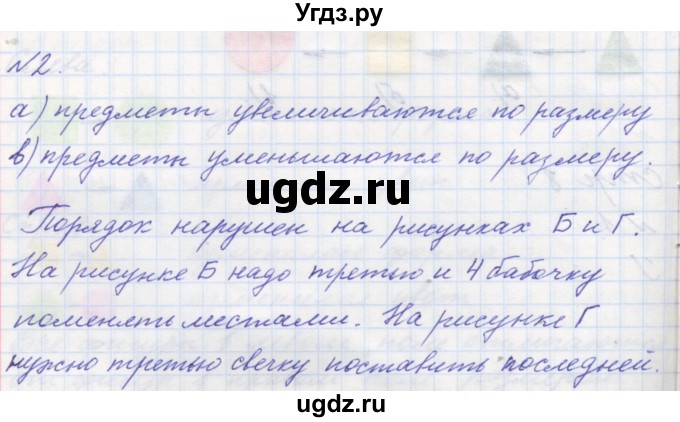 Угдз.ру
№2.
а) предметы увеличиваются по размеру
в) предметы уменьшаются по размеру.
ugdz.ru
Порядок нарушен на рисунках Б и Г.
На рисунке Б надо третью и 4 бабочку
поменять местами. На рисунке Г
нужно третью свечку поставить последней.
ugdz.ru